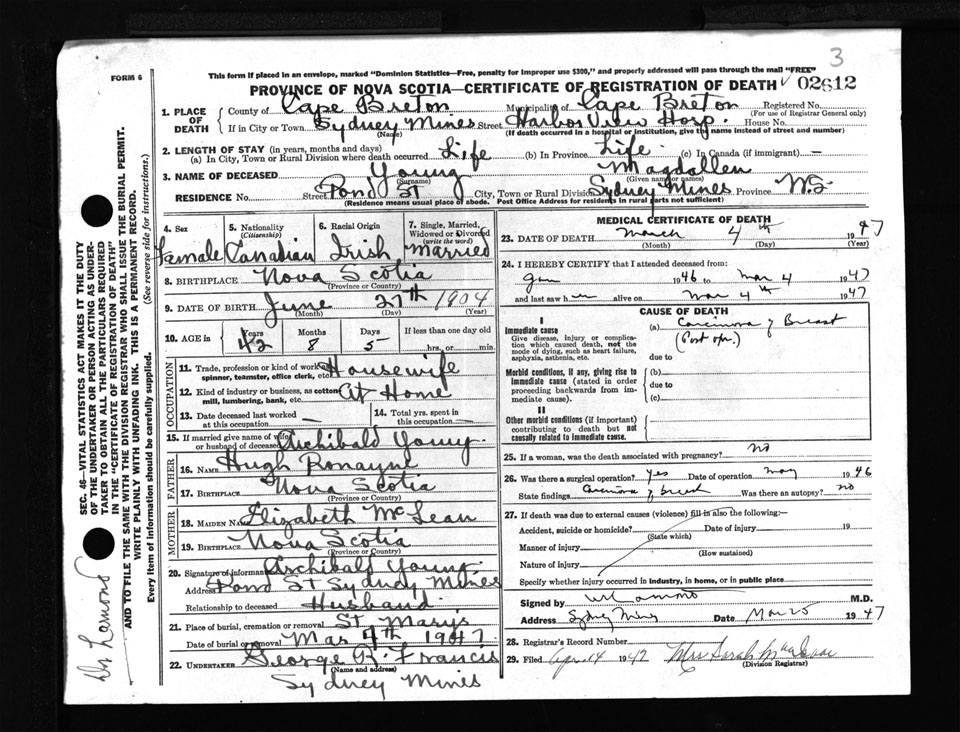 3
FORM 6
This form if placed in an envelope, marked "Dominion Statistics—Free, penalty for improper use $300," and properly addressed will pass through the mail "FREE"
PROVINCE OF NOVA SCOTIA—CERTIFICATE OF REGISTRATION OF DEATH 02612
1. PLACE OF DEATH
County of Cape Breton Municipality of Cape Breton Registered No.
(For use of Registrar General only)
If in City or Town Sydney Mines Street Harbor View Hosp. House No.
(Name) (If death occurred in a hospital or institution, give the name instead of street and number)
2. LENGTH OF STAY (in years, months and days)
(a) In City, Town or Rural Division where death occurred Life (b) In Province Life (c) In Canada (if immigrant) —
3. NAME OF DECEASED Young Magdallen
(Surname) (Given name or names)
RESIDENCE No. Street Pond St City, Town or Rural Division Sydney Mines Province N.S.
(Residence means usual place of abode. Post Office Address for residents in rural parts not sufficient)
4. Sex Female
5. Nationality (Citizenship) Canadian
6. Racial Origin Irish
7. Single, Married, Widowed or Divorced (write the word) Married
8. BIRTHPLACE Nova Scotia
(Province or Country)
9. DATE OF BIRTH June 27th 1904
(Month) (Day) (Year)
10. AGE in Years Months Days If less than one day old
42 8 5 hrs. or min.
OCCUPATION
11. Trade, profession or kind of work as spinner, teamster, office clerk, etc. Housewife
12. Kind of industry or business, as cotton mill, lumbering, bank, etc. At Home
13. Date deceased last worked at this occupation
14. Total yrs. spent in this occupation
15. If married give name of wife or husband of deceased Archibald Young
FATHER
16. NAME Hugh Ronayne
17. BIRTHPLACE Nova Scotia
(Province or Country)
MOTHER
18. MAIDEN NAME Elizabeth McLean
19. BIRTHPLACE Nova Scotia
(Province or Country)
20. Signature of informant Archibald Young
Address Pond St Sydney Mines
Relationship to deceased Husband
21. Place of burial, cremation or removal St Marys
Date of burial or removal Mar 7th 1947
22. UNDERTAKER George R. Francis
(Name and address)
Sydney Mines
MEDICAL CERTIFICATE OF DEATH
23. DATE OF DEATH March 4th 1947
(Month) (Day) (Year)
24. I HEREBY CERTIFY that I attended deceased from:
Jan 1946 to Mar 4 1947
and last saw her alive on Mar 4th 1947
CAUSE OF DEATH
I
Immediate cause
Give disease, injury or complication which caused death, not the mode of dying, such as heart failure, asphyxia, asthenia, etc.
(a) Carcinoma of Breast
(Post opr.)
due to
Morbid conditions, if any, giving rise to immediate cause (stated in order proceeding backwards from immediate cause).
(b)
due to
(c)
II
Other morbid conditions (if important) contributing to death but not causally related to immediate cause.
25. If a woman, was the death associated with pregnancy? no
26. Was there a surgical operation? yes Date of operation May 1946
State findings Carcinoma of breast Was there an autopsy? no
27. If death was due to external causes (violence) fill in also the following:—
Accident, suicide or homicide? Date of injury 19
(State which)
Manner of injury
(How sustained)
Nature of injury
Specify whether injury occurred in industry, in home, or in public place
Signed by M.D.
Address Sydney Mines Date Mar 5 1947
28. Registrar's Record Number
29. Filed Apr 14 1947 Mrs Sarah
(Division Registrar)
SEC. 46—VITAL STATISTICS ACT MAKES IT THE DUTY
OF THE UNDERTAKER OR PERSON ACTING AS UNDER-
TAKER TO OBTAIN ALL THE PARTICULARS REQUIRED
IN THE "CERTIFICATE OF REGISTRATION OF DEATH"
AND TO FILE THE SAME WITH THE DIVISION REGISTRAR WHO SHALL ISSUE THE BURIAL PERMIT.
WRITE PLAINLY WITH UNFADING INK. THIS IS A PERMANENT RECORD.
Every item of information should be carefully supplied. (See reverse side for instructions.)
Dr Lamond